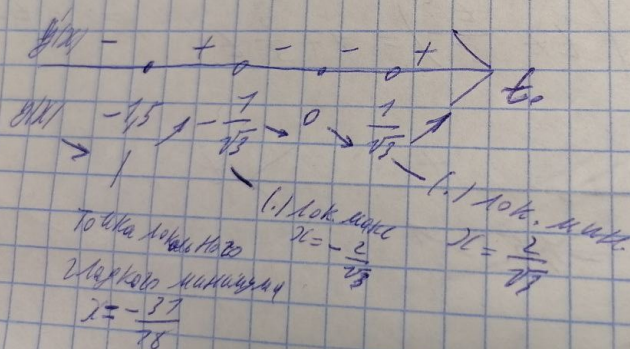 y'(x) - + - - +
t₀
y(x) -1,5 - 1/√3 0 1/√3
(.) лок. макс
x = - 2/√3
(.) лок. мин.
x = 2/√3
Точка локального
гладкого минимума
x = - 31/